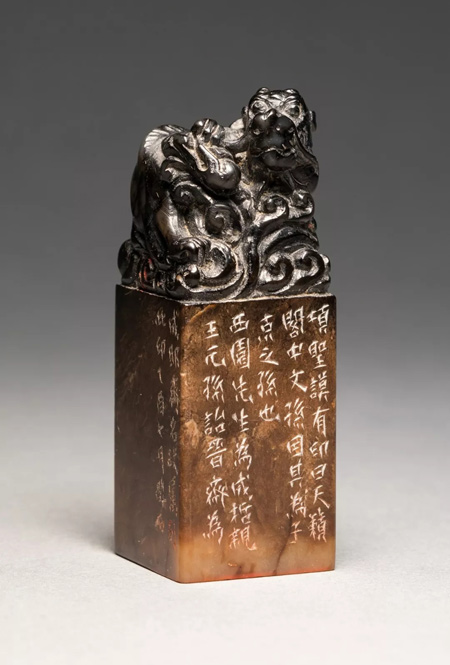 項聖謨有印曰天籟
閣中文孫因其為子
京之孫也
西園先生為成哲親
王元孫詒晉齋為
成邸齋名
此印